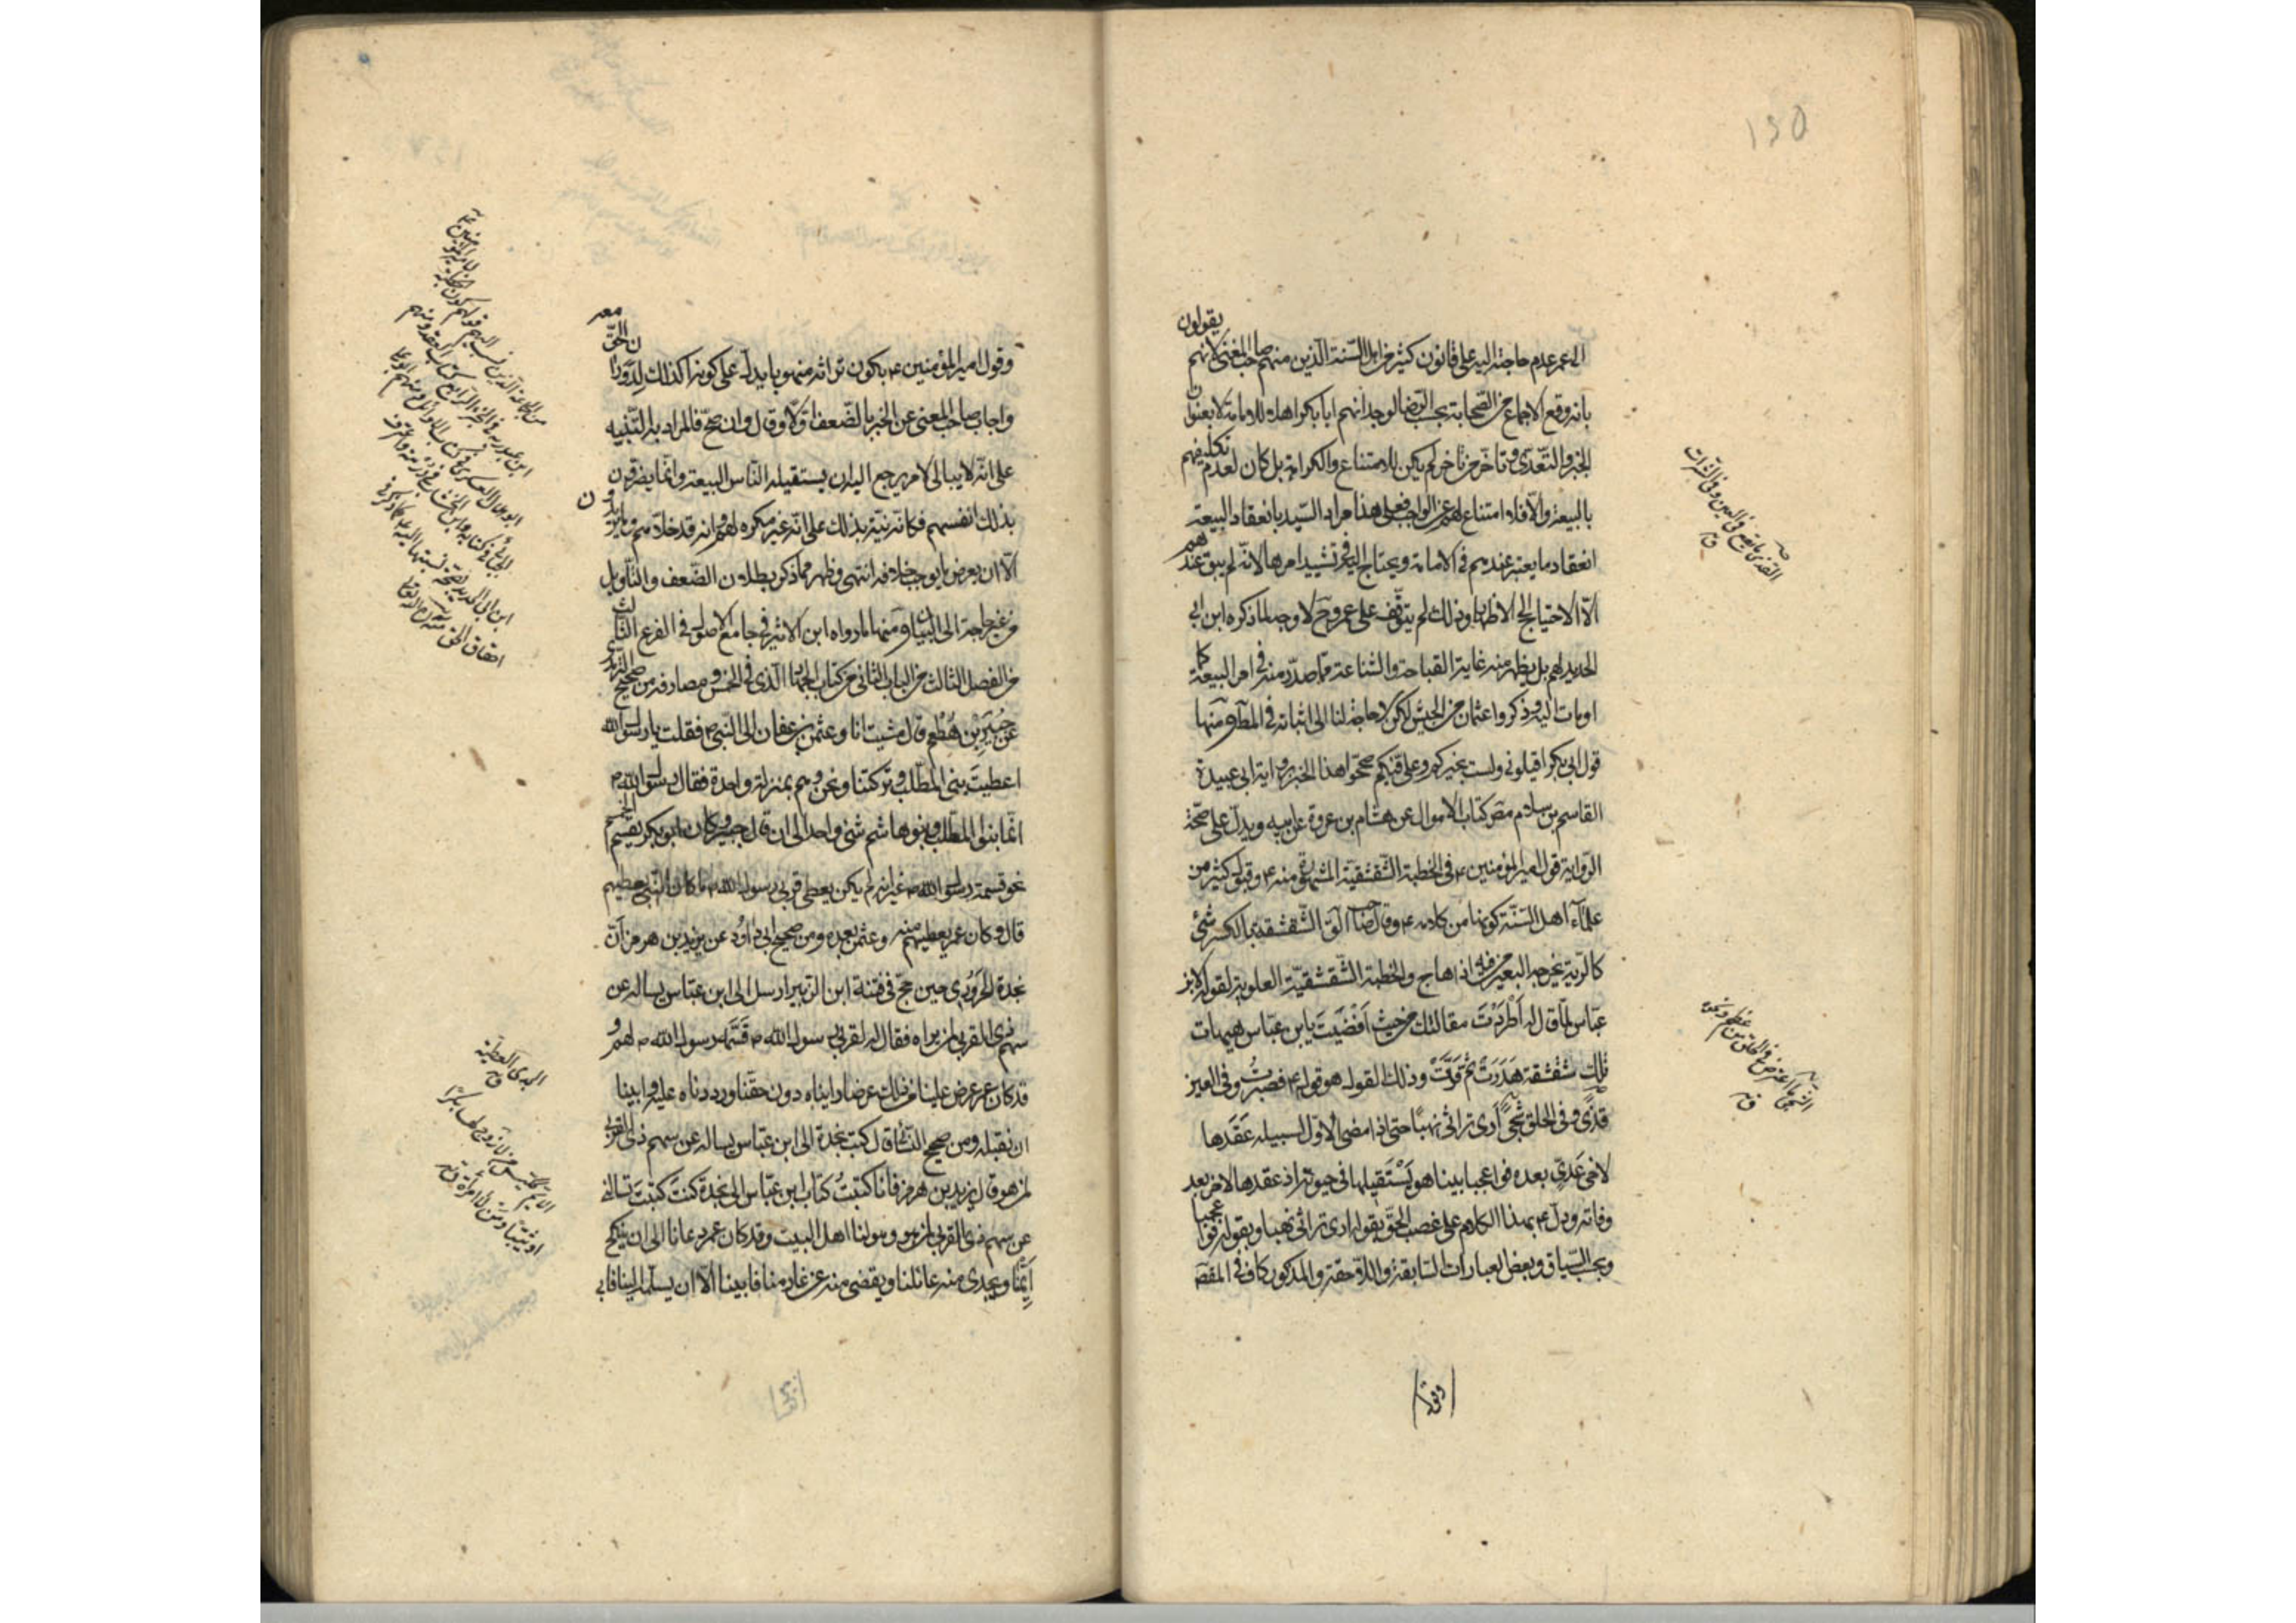 ١٥٥
الى عمر عدم حاجته اليه على قانون كثير من اهل السّنة الّذين منهم صاحب المغنى لانهم يقولون
بانه وقع الاجماع من الصّحابة بحسب الرضا لوجدانهم ابا بكر اهلا للامامة لا بعنوان
الجبر والتّعدى وتأخر من تأخر لم يكن للامتناع والكراهة بل كان لعدم تكليفهم
بالبيعة والّا فلا امتناع لهم عن الواجب فعلى هذا مراد السّيد بانعقاد البيعة
انعقاد ما يعتبر عندهم فى الامامة ويحتاج اليه فى تشييد امرها لانّه لم يبق عندهم
الّا الاحتياج الى الاظهار وذلك لم يتوقّف على عمر وح لا وجه لما ذكره ابن ابى
الحديد لهم بل يظهر منه غاية القباحة والشناعة ممّا صدر منه فى امر البيعة كما
اومأت اليه وذكروا عثمان من الجيش لكن لا حاجة لنا الى اثباته فى المطلب ومنها
قول ابى بكر اقيلونى ولست بخيركم وعلىّ فيكم صحّحوا هذا الخبر رواية ابى عبيدة
القاسم بن سلام مصـ كتاب الاموال عن هشام بن عروة عن ابيه ويدلّ على صحّة
الرّواية قول امير المؤمنين ع فى الخطبة الشّقشقيّة المشهورة منه ع وقبول كثير من
علمآء اهل السّنّة كونها من كلامه ع وقال صاحب الق الشّقشقة بالكسر شئ
كالرّية يخرجه البعير من فيه اذا هاج والخطبة الشّقشقيّة العلوية لقوله لابن
عبّاس لمّا قال له اَطْرَدْتَ مقالتك من حيث اَفْضَيْتَ يابن عبّاس هيهات
تلك شقشقة هَدَرَتْ ثم قَرَّتْ وذلك القول هو قوله ع فصبرتُ وفى العين
قذًى وفى الحلق شجًى اَرى تراثى نهبًا حتى اذا مضى الاوّل لسبيله عَقَدَها
لاخى عَدِىّ بعده فوا عجبا بينا هو يَسْتَقيلها فى حيوته اذ عقدها لاخر بعد
وفاته ودلّ ع بهذا الكلام على غصب الحقّ بقوله ارى تراثى نهبا وبقوله فوا عجبا
وبحسب السّياق وبعض العبارات السّابقة واللّاحقة والمذكور كاف فى المقصـ
القذى ما يقع فى العين وفى الشراب
ق
الشجى ما اعترض فى الحلق من عظم ونحوه
ق
وقول
وقول امير المؤمنين ع بكون تراثه منهوبا يدلّ على كونه اكذلك لدوران الحقّ معه
واجاب صاحب المغنى عن الخبر بالضّعف اوّلا وقال وان صحّ فالمراد به التّنبيه
على انّه لا يبالى لامر يرجع اليه ان يستقيله النّاس البيعة وانّما يضرّون
بذلك انفسهم فكانّه نبّه بذلك على انّه غير مكره لهم وانه قد خلّاهم وما يريدون
الّا ان يعرض ما يوجب خلافه انتهى وظهر ممّا ذكر بطلان الضّعف والتّأويل
من غير حاجة الى البيان ومنها ما رواه ابن الاثير فى جامع الاصول فى الفرع الثّالث
من الفصل الثالث من الباب الثانى من كتاب الجهاد الّذى فى الخمس ومصارفه من صحيح
عن جُبَيْرِبْنِ مُطْعِم قال مشيت انا وعثمن بن عفان الى النّبى ص فقلت يا رسول الله
اعطيتَ بنى المطّلب وتركتنا ونحن وهم بمنزلة واحدة فقال رسول الله ص
انّما بنوا المطّلب وبنوا هاشم شئ واحد الى ان قال جبير وكان ابو بكر يقسم الخمس
نحو قسمة رسول الله ص غير انه لم يكن يعطى قربى رسول الله ص ما كان النّبى يعطيهم
قال وكان عمر يعطيهم منه وعثمن بعده ومن صحيح ابى داوُد عن يزيد بن هرمز انّ
نجدة الحَرَوْرِى حين حجّ فى فتنة ابن الزبير ارسل الى ابن عبّاس يساله عن
سهم ذى القربى لمن يراه فقال له لقربى رسول الله ص قَسَّمَه رسول الله ص لهم و
قد كان عمر عرض علينا من ذلك عرضا رايناه دون حقّنا ورددناه عليه وابينا
ان نقبله ومن صحيح النّسائى قال كتب نجدة الى ابن عبّاس يساله عن سهم ذى القربى
لمن هو قال يزيد بن هرمز فانا كتبتُ كتاب ابن عبّاس الى نجدة كتبَ كتبتَ تسالنى
عن سهم ذى القربى لمن هو وهو لنا اهل البيت وقد كان عمر دعانا الى ان ينكح
اَيِّمَنا ويجدى منه عائلنا ويقضى منه عن غارمنا فابينا الّا ان يسلّمه الينا فابى
الجدى العطيّة
ق
الايّم ككيّس من لا زوج لها بكرًا
او ثيّبا ومن لا امرأة له ق